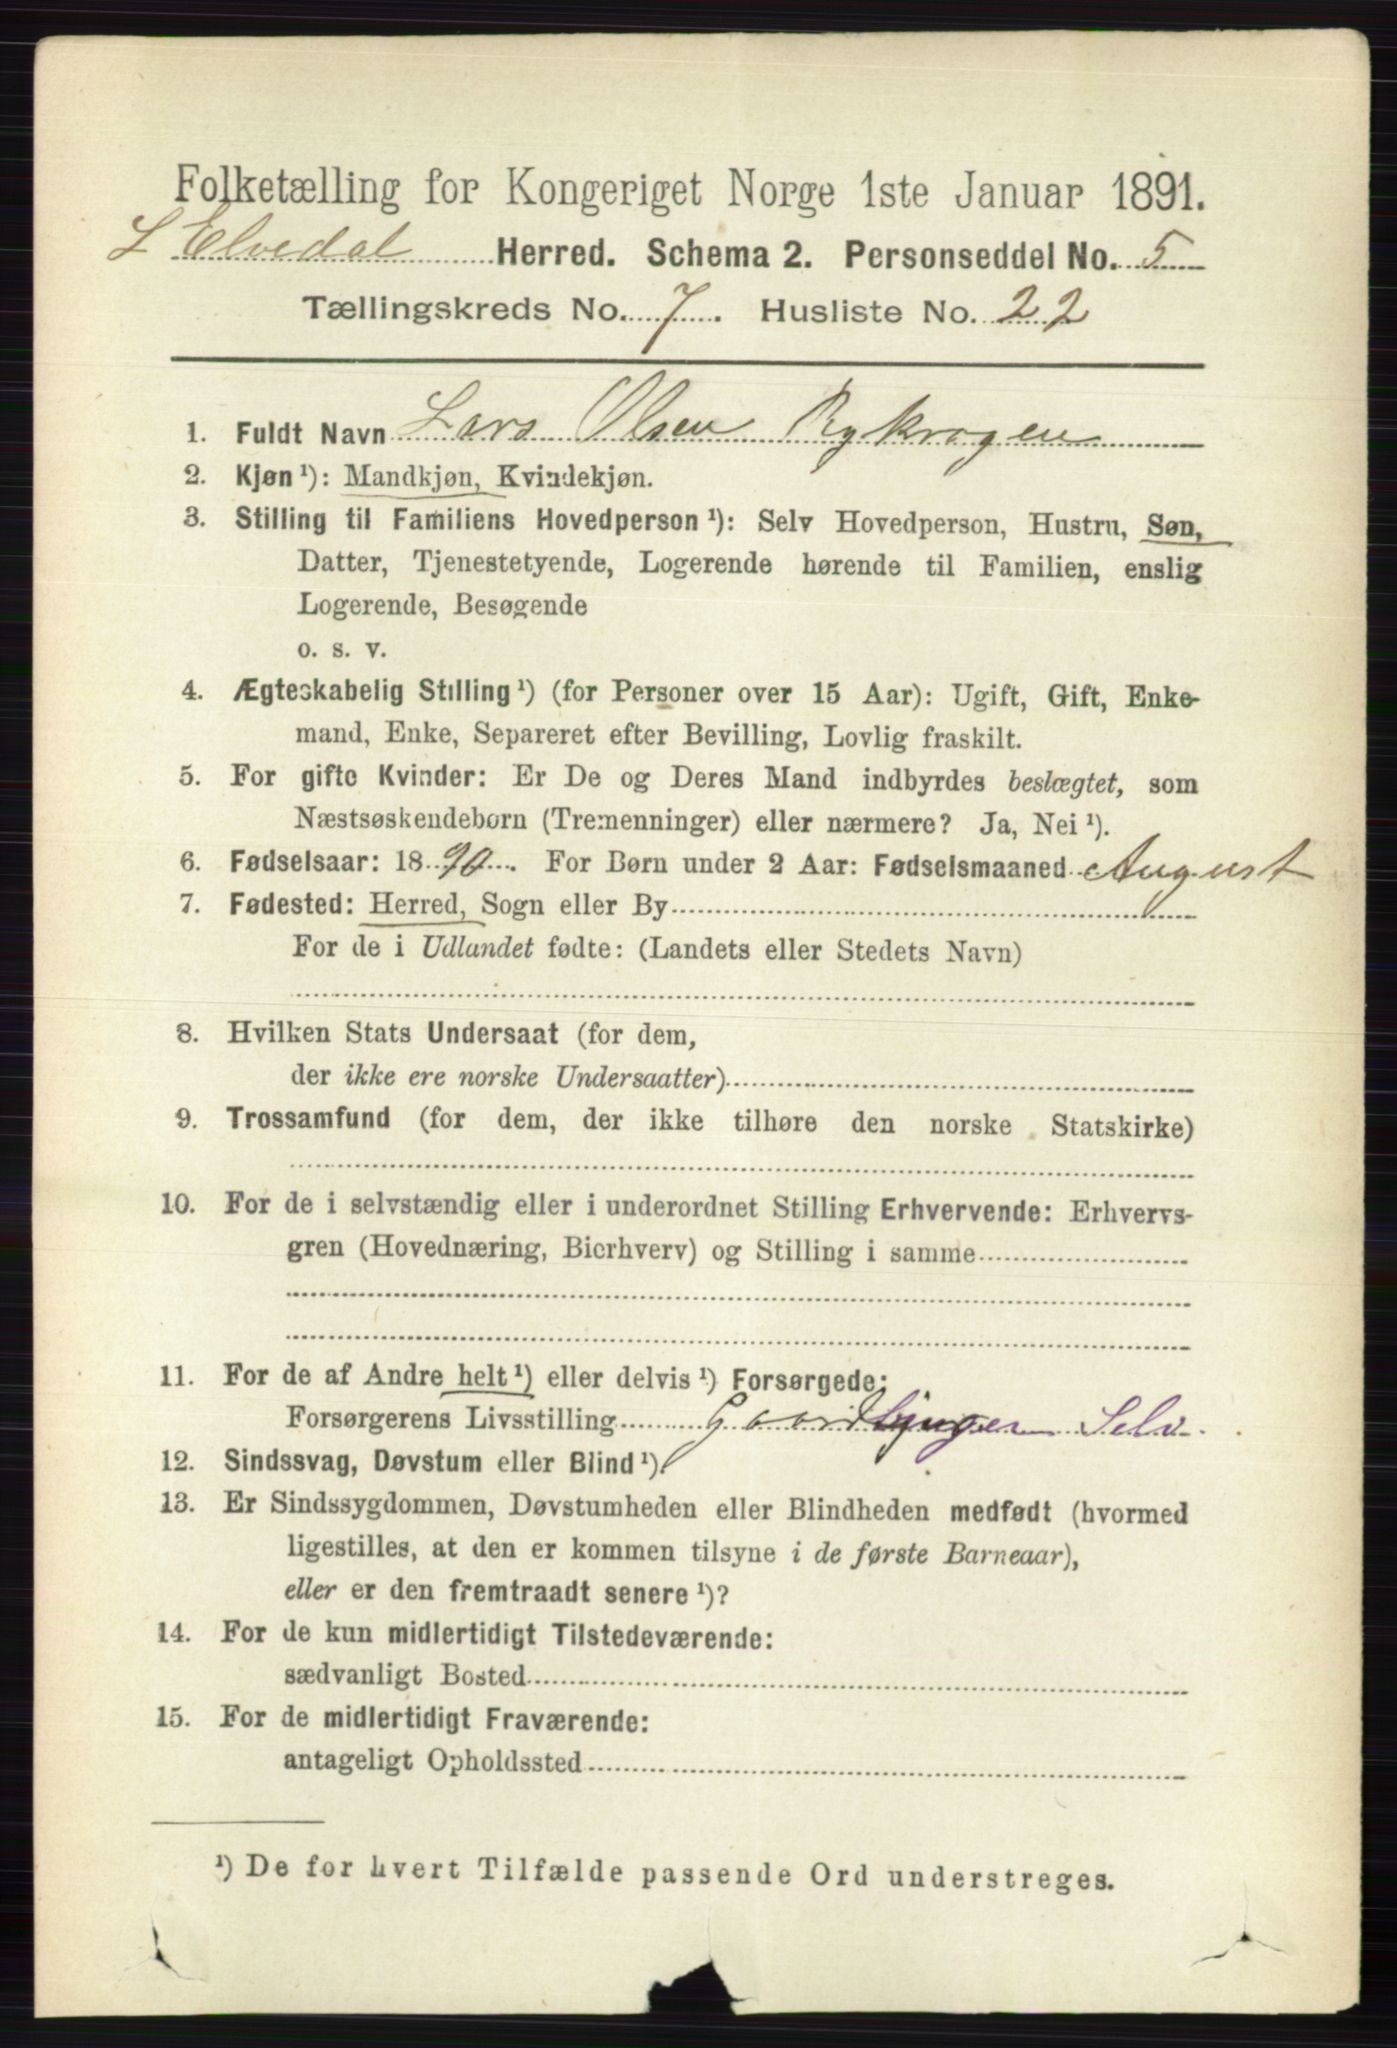 Folketælling for Kongeriget Norge 1ste Januar 1891.
L Elvedal Herred. Schema 2. Personseddel No. 5
Tællingskreds No. 7. Husliste No. 22
1. Fuldt Navn Lars Olsen Rykrogen
2. Kjøn ¹): Mandkjøn, Kvindekjøn.
3. Stilling til Familiens Hovedperson ¹): Selv Hovedperson, Hustru, Søn,
Datter, Tjenestetyende, Logerende hørende til Familien, enslig
Logerende, Besøgende
o. s. v.
4. Ægteskabelig Stilling ¹) (for Personer over 15 Aar): Ugift, Gift, Enke-
mand, Enke, Separeret efter Bevilling, Lovlig fraskilt.
5. For gifte Kvinder: Er De og Deres Mand indbyrdes beslægtet, som
Næstsøskendebørn (Tremenninger) eller nærmere? Ja, Nei ¹).
6. Fødselsaar: 1890. For Børn under 2 Aar: Fødselsmaaned August
7. Fødested: Herred, Sogn eller By
For de i Udlandet fødte: (Landets eller Stedets Navn)
8. Hvilken Stats Undersaat (for dem,
der ikke ere norske Undersaatter)
9. Trossamfund (for dem, der ikke tilhøre den norske Statskirke)
10. For de i selvstændig eller i underordnet Stilling Erhvervende: Erhvervs-
gren (Hovednæring, Bierhverv) og Stilling i samme
11. For de af Andre helt ¹) eller delvis ¹) Forsørgede:
Forsørgerens Livsstilling Selv.
12. Sindssvag, Døvstum eller Blind ¹).
13. Er Sindssygdommen, Døvstumheden eller Blindheden medfødt (hvormed
ligestilles, at den er kommen tilsyne i de første Barneaar),
eller er den fremtraadt senere ¹)?
14. For de kun midlertidigt Tilstedeværende:
sædvanligt Bosted
15. For de midlertidigt Fraværende:
antageligt Opholdssted
¹) De for hvert Tilfælde passende Ord understreges.